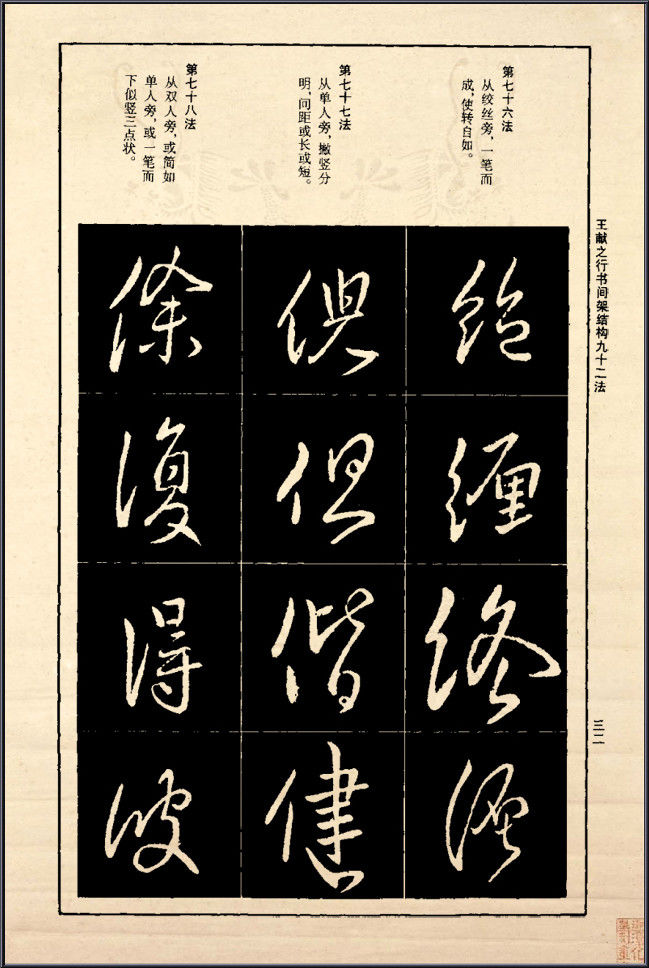 王献之行书间架结构九十二法
第七十六法
从绞丝旁，一笔而
成，使转自如。
第七十七法
从单人旁，撇竖分
明，间距或长或短。
第七十八法
从双人旁，或简如
单人旁，或一笔而
下似竖三点状。
缠
终
俱
但
偕
健
徐
復
得
彼
三二